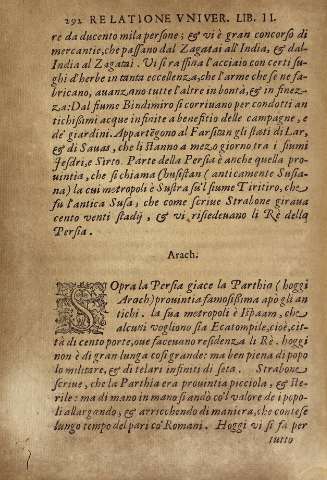 292 RELATIONE VNIVER. LIB. II.
re da ducento mila persone; & vi è gran concorso di
mercantie, che passano dal Zagatai all'India, & dall'
India al Zagatai. Vi si raffina l'acciaio con certi su-
ghi d'herbe in tanta eccellenza, che l'arme che se ne fa-
bricano, auanzano tutte l'altre in bontà, & in finez-
za: Dal fiume Bindimiro si corriuano per condotti an
tichissimi acque infinite a benefitio delle campagne, e
de' giardini. Appartēgono al Farsistan gli stati di Lar,
& di Sauas, che li stanno a mezo giorno tra i fiumi
Iesdri, e Sirto. Parte della Persia è anche quella pro-
uintia, che si chiama Chusistan (anticamente Susia-
na) la cui metropoli è Sustra su'l fiume Tiritiro, che
fu l'antica Susa, che come scriue Strabone giraua
cento venti stadij, & vi risiedeuano li Rè della
Persia.
Arach.
SOpra la Persia giace la Parthia (hoggi
Arach) prouintia famosissima apo gli an
tichi. la sua metropoli è Hpaam, che
alcuni vogliono sia Ecatompile, cioè, cit-
tà di cento porte, oue faceuano residenza li Rè. hoggi
non è di gran lunga cosi grande: ma ben piena di popo
lo militare, & di telari infiniti di seta. Strabone
scriue, che la Parthia era prouintia picciola, & ste-
rile: ma di mano in mano si andò co'l valore de i popo-
li allargando, & arricchendo di maniera, che contese
lungo tempo del pari co' Romani. Hoggi vi si fa per
tutto